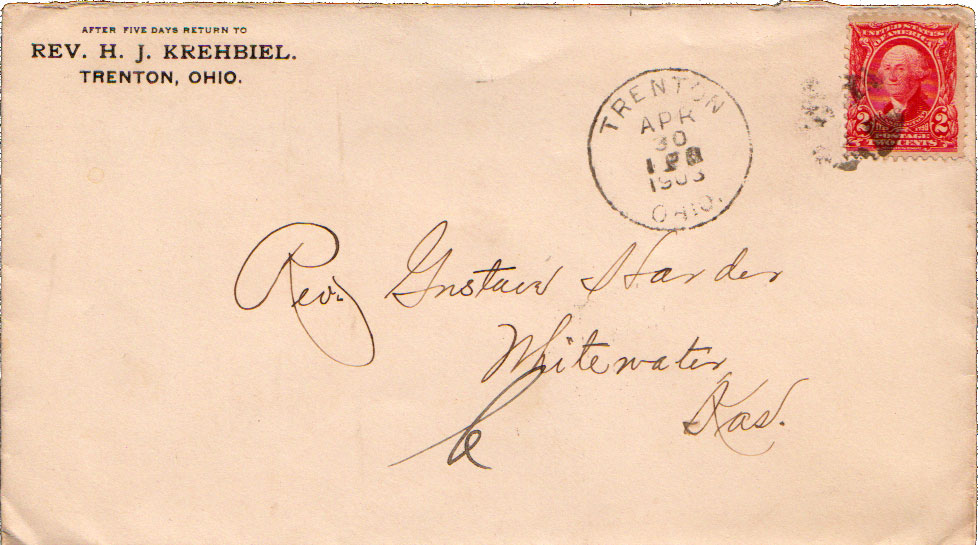 AFTER FIVE DAYS RETURN TO
REV. H. J. KREHBIEL.
TRENTON, OHIO.
TRENTON
APR
30
1 PM
1903
OHIO.
UNITED STATES
OF AMERICA
2 2
POSTAGE
TWO CENTS
Rev. Gustav Harder
Whitewater
Kas.